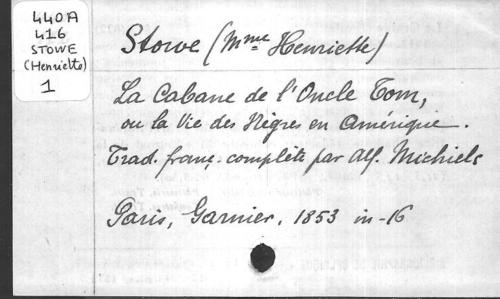 440A
416
STOWE
(Henriette)
1
Stowe (Mme Henriette)
La Cabane de l'Oncle Tom,
ou la Vie des Nègres en Amérique.
Trad. franc. complète par Alf. Michiels
Paris, Garnier, 1853 in-16